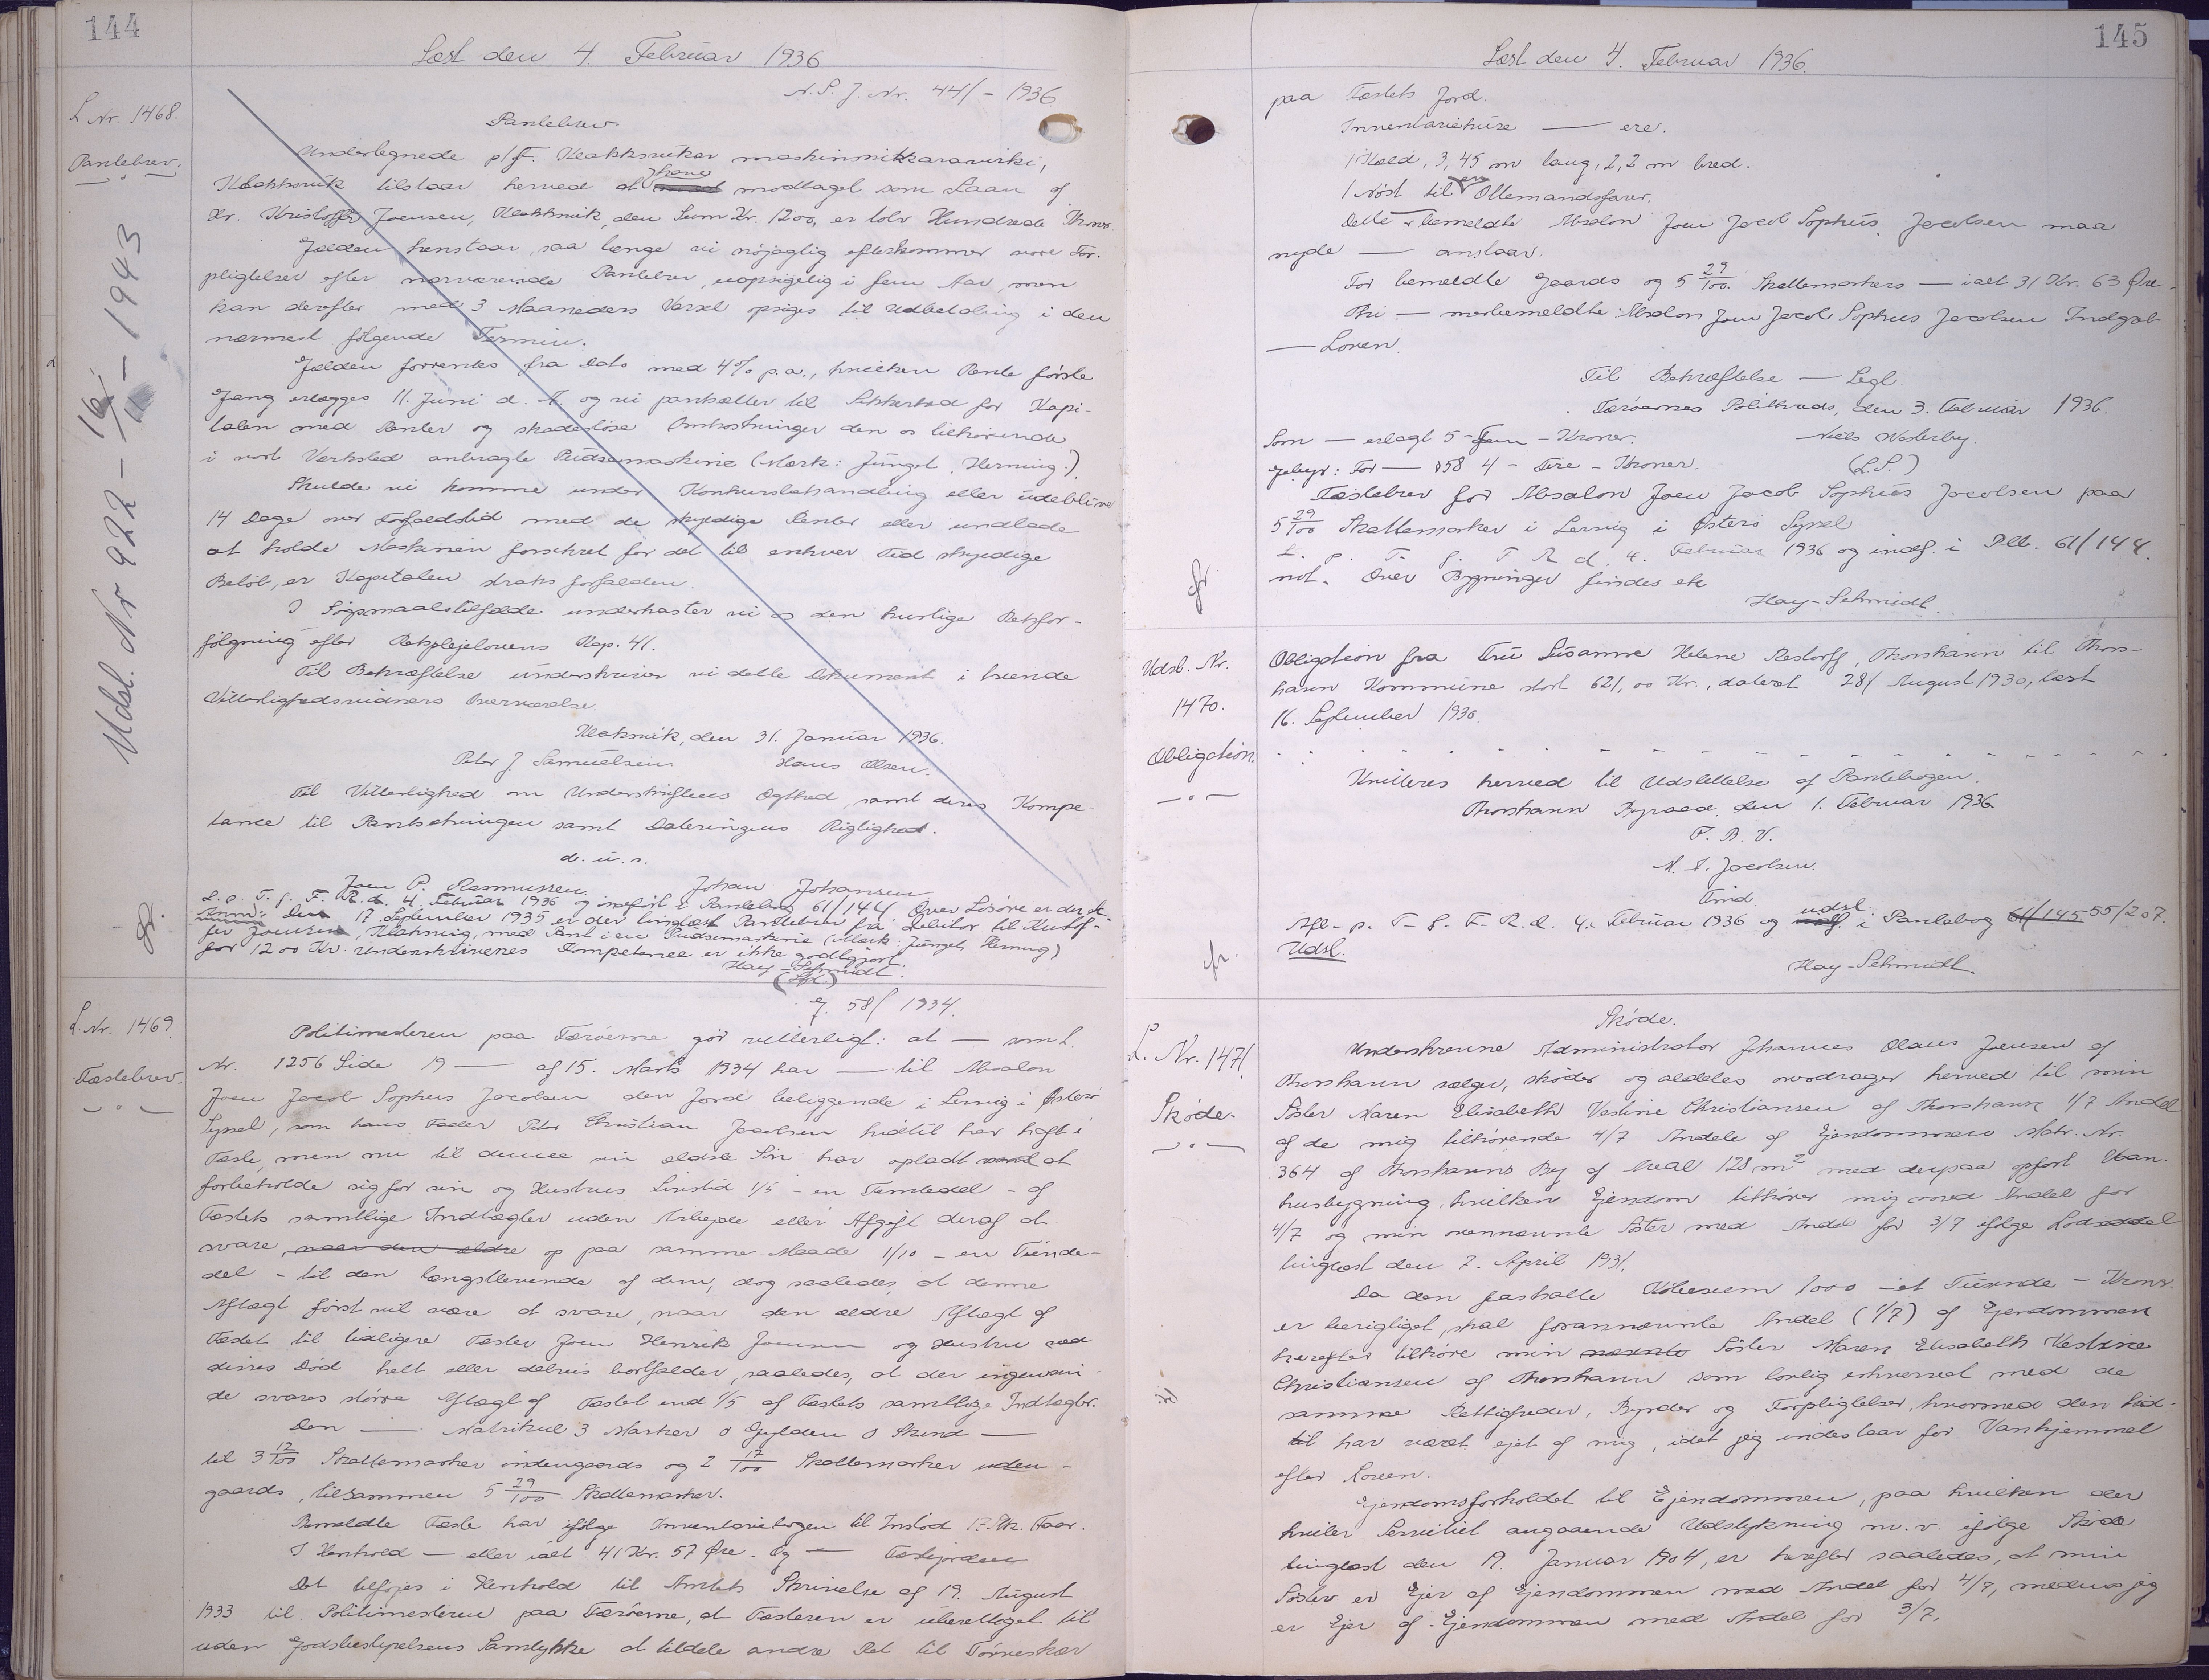 144
Læst den 4. Februar 1936
N.S.J. Nr. 441 - 1936
L Nr. 1468.
Pantebrev.
Udsl. Nr 922 - 16/11 - 1943
Pantebrev
Undertegnede p/f. Klakksvikar maskinmikkaravirki,
Klakksvik tilstaar herved at have modtaget som Laan af
Hr. Kristoffer Joensen, Klakksvik, den Sum Kr. 1200, er tolv Hundrede Kroner.
Gælden henstaar, saa længe vi nøjagtig efterkommer vore For-
pligtelser efter nærværende Pantebrev, uopsigelig i fem Aar, men
kan derefter med 3 Maaneders Varsel opsiges til Udbetaling i den
nærmest følgende Termin.
Gælden forrentes fra Dato med 4% p.a., hvilken Rente første
Gang erlægges 11. Juni d. A. og vi pantsætter til Sikkerhed for Kapi-
talen med Renter og skadesløse Omkostninger den os tilhørende
i vort Værksted anbragte Pudsemaskine (Mærk: Junget, Herning.)
Skulde vi komme under Konkursbehandling eller udeblive
14 Dage over Forfaldstid med de skyldige Renter eller undlade
at holde Maskinen forsikret for det til enhver Tid skyldige
Beløb, er Kapitalen straks forfalden.
I Søgsmaalstilfælde underkaster vi os den hurtige Retsfor-
følgning efter Retsplejelovens Kap. 41.
Til Bekræftelse underskriver vi dette Dokument i tvende
Vitterlighedsvidners Overværelse.
Klaksvik, den 31. Januar 1936.
Peter J. Samuelsen Hans Olsen.
Til Vitterlighed om Underskriftens Ægthed, samt deres Kompe-
tance til Pantsætningen samt Dateringens Rigtighed.
d. u. s.
Joen P. Rasmussen. Johan Johansen
L. p. T. f. F. R. d. 4. Februar 1936 og indført i Pantebog 61/144. Over Løsøre er der
Anm: Den 17. September 1935 er der tinglæst Pantebrev fra Debitor til Kristof-
fer Joensen, Klaksvig, med Pant i en Pudsemaskine (Mærk: Junget, Herning)
for 1200 Kr. Underskrivernes Kompetance er ikke godtgjort.
Hay-Schmidt.
L. Nr. 1469.
Fæstebrev.
J. 58/ 1934.
Politimesteren paa Færøerne gör vitterligt: at — som L.
Nr. 1256 Side 19 — af 15. Marts 1934 har — til Absalon
Joen Jacob Sophus Jacobsen den Jord beliggende i Lervig i Østerø
Syssel, som hans Fader Peter Christian Jacobsen hidtil har haft i
Fæste, men nu til denne sin ældste Søn har opladt mod at
forbeholde sig for sin og Hustrus Livstid 1/5 - en Femtedel - af
Fæstets samtlige Indtægter uden Arbejde eller Afgift deraf at
svare, naar den ældre op paa samme Maade 1/10 - en Tiende-
del - til den længstlevende af dem, dog saaledes, at denne
Aftægt først vil være at svare, naar den ældre Aftægt af
Fæstet til tidligere Fæster Joen Henrik Joensen og Hustru ved
disses Død helt eller delvis bortfalder, saaledes, at der ingensin
de svares större Aftægt af Fæstet end 1/5 af Fæstets samtlige Indtægter.
Den — Matrikul 3 Marker 0 Gylden 0 Skind —
til 3 12/100 Skattemarker indengaards og 2 17/100 Skattemarker uden-
gaards, tilsammen 5 29/100 Skattemarker.
Bemeldte Fæste har ifølge Inventariebogen til Indstød 17. Stk. Faar.
I Henhold — eller ialt 41 Kr. 57 Øre. Og — Fæstejorden
Det tilføjes i Henhold til Amtets Skrivelse af 19. August
1933 til Politimesteren paa Færøerne, at Fæsteren er uberettiget til
uden Jordbestyrelsens Samtykke at tildele andre Ret til Tørveskær
145
Læst den 4. Februar 1936.
paa Fæstets Jord.
Inventariehuse — ere.
1 Hjald, 3,45 m lang, 2,2 m bred.
1 Nøst til en Ottemandsfarer.
Dette bemeldte Absalon Joen Jacob Sophus Jacobsen maa
nyde — anstaar.
For bemeldte Gaards og 5 29/100 Skattemarkers — ialt 31 Kr. 63 Øre.
Thi — merbemeldte Absalon Joen Jacob Sophus Jacobsen Indgæt
— Loven.
Til Bekræftelse — Segl.
Færøernes Politikreds, den 3. Februar 1936.
Som — erlagt 5 - Fem - Kroner. Niels Westerby.
Gebyr: For — § 58 4 - Fire - Kroner. (L.S.)
Fæstebrev for Absalon Joen Jacob Sophus Jacobsen paa
5 29/100 Skattemarker i Lervig i Østerø Syssel
L. p. T. f. F. R. d. 4. Februar 1936 og indf. i Ptb. 61/144.
not. Over Bygninger findes ek
Hay-Schmidt.
Udsl. Nr.
1470.
Obligation.
Obligation fra Fru Susanne Helene Restorff, Thorshavn til Thors-
havn Kommune stort 621,00 Kr., dateret 28/ August 1930, læst
16. September 1930.
Kvitteres herved til Udslettelse af Pantebogen.
Thorshavn Byraad, den 1. Februar 1936.
P. B. V.
M. S. Jacobsen.
Fmd.
Afl. p. T. f. F. R. d. 4. Februar 1936 og udsl. i Pantebog 61/145 55/207.
Udsl.
Hay-Schmidt.
L. Nr. 1471.
Skøde.
Skøde.
Underskrevne Administrator Johannes Olaus Joensen af
Thorshavn sælger, skøder og aldeles overdrager herved til min
Søster Maren Elisabeth Vestine Christiansen af Thorshavn 1/7 Andel
af de mig tilhørende 4/7 Andele af Ejendommen Matr. Nr.
364 af Thorshavns By af Areal 128 m² med derpaa opført Vaan-
husbygning, hvilken Ejendom tilhører mig med Andel for
4/7 og min ovennævnte Søster med Andel for 3/7 ifølge Lod
tinglæst den 7. April 1931.
Da den fastsatte Købesum 1000 - et Tusinde - Kroner
er berigtiget, skal forannævnte Andel (1/7) af Ejendommen
herefter tilhøre min nævnte Søster Maren Elisabeth Vestine
Christiansen af Thorshavn som lovlig erhvervet med de
samme Rettigheder, Byrder og Forpligtelser, hvormed den hid-
til har været ejet af mig, idet jeg indestaar for Vanhjemmel
efter Loven.
Ejendomsforholdet til Ejendommen, paa hvilken der
hviler Servitut angaaende Udstykning m. v. ifølge Skøde
tinglæst den 19. Januar 1904, er herefter saaledes, at min
Søster er Ejer af Ejendommen med Andel for 4/7, medens jeg
er Ejer af Ejendommen med Andel for 3/7.